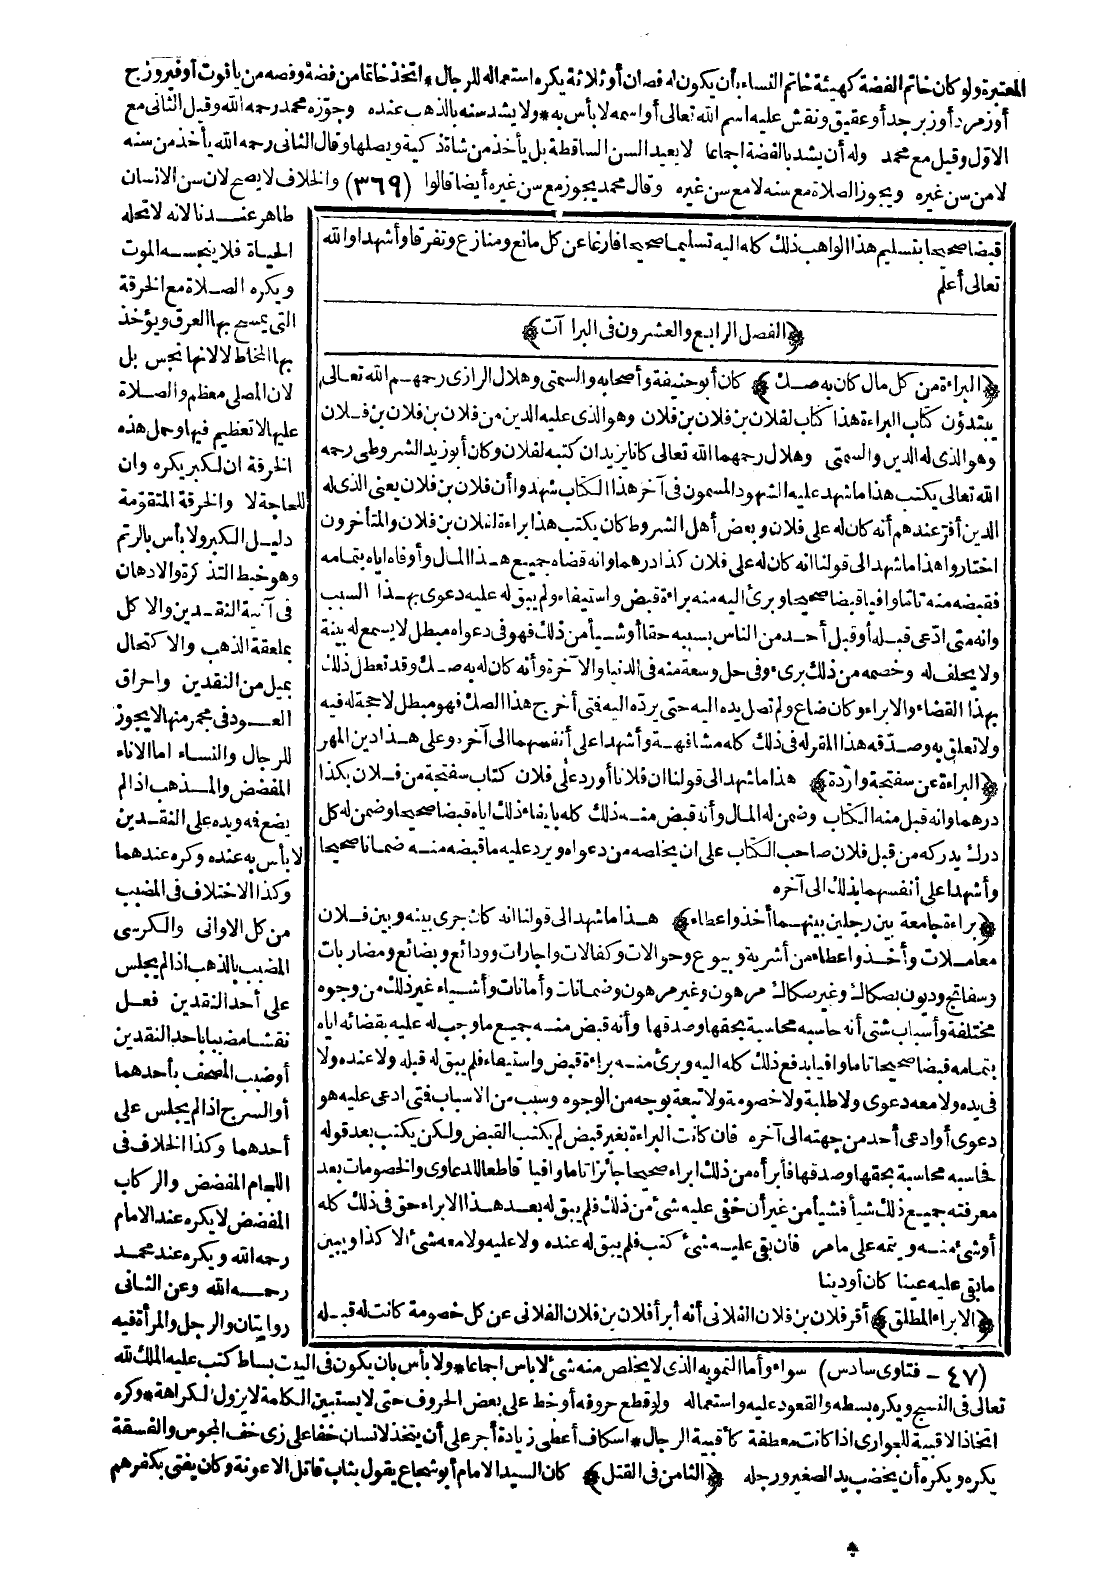 المعتبرة ولو كان خاتم الفضة كهيئة خاتم النساء بأن يكون له فصان أو ثلاثة يكره استعماله للرجال * اتخذ خاتما من فضة وفصه من ياقوت أو فيروزج
أو زمرد أو زبرجد أو عقيق ونقش عليه اسم الله تعالى أو اسمه لا بأس به * ولا يشد سنه بالذهب عنده وجوزه محمد رحمه الله وقيل الثانى مع
الاول وقيل مع محمد وله أن يشد بالفضة اجماعا لا يعيد السن الساقطة بل يأخذ من شاة ذكية ويصلها وقال الثانى رحمه الله يأخذ من سنه
لا من سن غيره ويجوز الصلاة مع سنه لا مع سن غيره وقال محمد يجوز مع سن غيره أيضا قالوا (٣٦٩) والخلاف لا يصح لان سن الانسان
طاهر عندنا لانه لا تحله
الحياة فلا ينجسه الموت
ويكره الصلاة مع الخرقة
التى يمسح بها العرق ويؤخذ
بها المخاط لا لانها نجس بل
لان المصلى معظم والصلاة
عليها لا تعظيم فيها وحمل هذه
الخرقة ان لكبر يكره وان
للحاجة لا والخرقة المتقومة
دليل الكبر ولا بأس بالرتم
وهو خيط التذكرة والادهان
فى آنية النقدين والاكل
بملعقة الذهب والاكتحال
بميل من النقدين واحراق
العود فى مجمر منها لا يجوز
للرجال والنساء اما الاناء
المفضض والمذهب اذا لم
يضع فه ويده على النقدين
لا بأس به عنده وكره عندهما
وكذا الاختلاف فى المضبب
من كل الاوانى والكرسى
المضبب بالذهب اذا لم يجلس
على أحد النقدين فعل
نقشا مضببا باحد النقدين
أو ضبب المصحف بأحدهما
أو السرج اذا لم يجلس على
أحدهما وكذا الخلاف فى
اللجام المفضض والركاب
المفضض لا يكره عند الامام
رحمه الله ويكره عند محمد
رحمه الله وعن الثانى
روايتان والرجل والمرأة فيه
قبضا صحيحا بتسليم هذا الواهب ذلك كله اليه تسليما صحيحا فارغا عن كل مانع ومنازع وتفرقا وأشهدا والله
تعالى أعلم
﴿الفصل الرابع والعشرون فى البراآت﴾
﴿البراءة من كل مال كان به صك﴾ كان أبو حنيفة وأصحابه والسمتى وهلال الرازى رحمهم الله تعالى
يبتدؤن كتاب البراءة هذا كتاب لفلان بن فلان بن فلان وهو الذى عليه الدين من فلان بن فلان بن فلان
وهو الذى له الدين والسمتى وهلال رحمهما الله تعالى كانا يزيدان كتبه لفلان وكان أبو زيد الشروطى رحمه
الله تعالى يكتب هذا ما شهد عليه الشهود المسمون فى آخر هذا الكتاب شهدوا أن فلان بن فلان يعنى الذى له
الدين أقر عندهم أنه كان له على فلان وبعض أهل الشروط كان يكتب هذا براءة لفلان بن فلان والمتأخرون
اختاروا هذا ما شهد الى قولنا انه كان له على فلان كذا درهما وانه قضاه جميع هذا المال وأوفاه اياه بتمامه
فقبضه منه تاما وافيا قبضا صحيحا وبرئ اليه منه براءة قبض واستيفاء ولم يبق له عليه دعوى بهذا السبب
وانه متى ادعى قبله أو قبل أحد من الناس بسببه حقا أو شيأ من ذلك فهو فى دعواه مبطل لا يسمع له بينة
ولا يحلف له وخصمه من ذلك برىء وفى حل وسعة منه فى الدنيا والآخرة وأنه كان له به صك وقد تعطل ذلك
بهذا القضاء والابراء وكان ضاع ولم تصل يده اليه حتى يرده اليه فتى أخرج هذا الصك فهو مبطل لا حجة له فيه
ولا تعلق به وصدقه هذا المقر له فى ذلك كله مشافهة وأشهدا على أنفسهما الى آخره وعلى هذا دين المهر
﴿البراءة عن سفتجة واردة﴾ هذا ما شهد الى قولنا ان فلانا أورد على فلان كتاب سفتجة من فلان بكذا
درهما وانه قبل منه الكتاب وضمن له المال وأنه قبض منه ذلك كله بايفاء ذلك اياه قبضا صحيحا وضمن له كل
درك يدركه من قبل فلان صاحب الكتاب على ان يخلصه من دعواه ويرد عليه ما قبضه منه ضمانا صحيحا
وأشهدا على أنفسهما بذلك الى آخره
﴿براءة جامعة بين رجلين بينهما أخذ واعطاء﴾ هذا ما شهد الى قولنا انه كان جرى بينه وبين فلان
معاملات وأخذ واعطاء من أشرية وبيوع وحوالات وكفالات واجارات وودائع وبضائع ومضاربات
وسفاتج وديون بصكاك وغير صكاك مرهون وغير مرهون وضمانات وأمانات وأشياء غير ذلك من وجوه
مختلفة وأسباب شتى أنه حاسبه محاسبة بحقها وصدقها وأنه قبض منه جميع ما وجب له عليه بقضائه اياه
بتمامه قبضا صحيحا تاما وافيا بدفع ذلك كله اليه وبرئ منه براءة قبض واستيفاء فلم يبق له قبله ولا عنده ولا
فى يده ولا معه دعوى ولا طلبة ولا خصومة ولا تبعة بوجه من الوجوه وسبب من الاسباب فتى ادعى عليه هو
دعوى أو ادعى أحد من جهته الى آخره فان كانت البراءة بغير قبض لم يكتب القبض ولكن يكتب بعد قوله
فحاسبه محاسبة بحقها وصدقها فأبرأه من ذلك ابراء صحيحا جائزا تاما وافيا قاطعا للدعاوى والخصومات بعد
معرفته جميع ذلك شيأ فشيأ من غير أن خفى عليه شئ من ذلك فلم يبق له بعد هذا الابراء حق فى ذلك كله
أو شئ منه ويتمه على مامر فان بقى عليه شئ كتب فلم يبق له عنده ولا عليه ولا معه شئ الا كذا ويبين
ما بقى عليه عينا كان أو دينا
﴿الابراء المطلق﴾ أقر فلان بن فلان الفلانى أنه أبرأ فلان بن فلان الفلانى عن كل خصومة كانت له قبله
(٤٧ - فتاوى سادس) سواء وأما التمويه الذى لا يخلص منه شئ لا بأس اجماعا * ولا بأس بان يكون فى البيت بساط كتب عليه الملك لله
تعالى فى النسج ويكره بسطه والقعود عليه واستعماله ولو قطع حروفه أو خط على بعض الحروف حتى لا يستبين الكلمة لا يزول الكراهة * وكره
اتخاذ الاقبية للعوارى اذا كانت معطفة كأقبية الرجال * اسكاف أعطى زيادة أجر على أن يتخذ لانسان خفا على زى خف المجوس والفسقة
يكره ويكره أن يخضب يد الصغير ورجله ﴿الثامن فى القتل﴾ كان السيد الامام أبو شجاع يقول يثاب قاتل الاعونة وكان يفتى بكفرهم